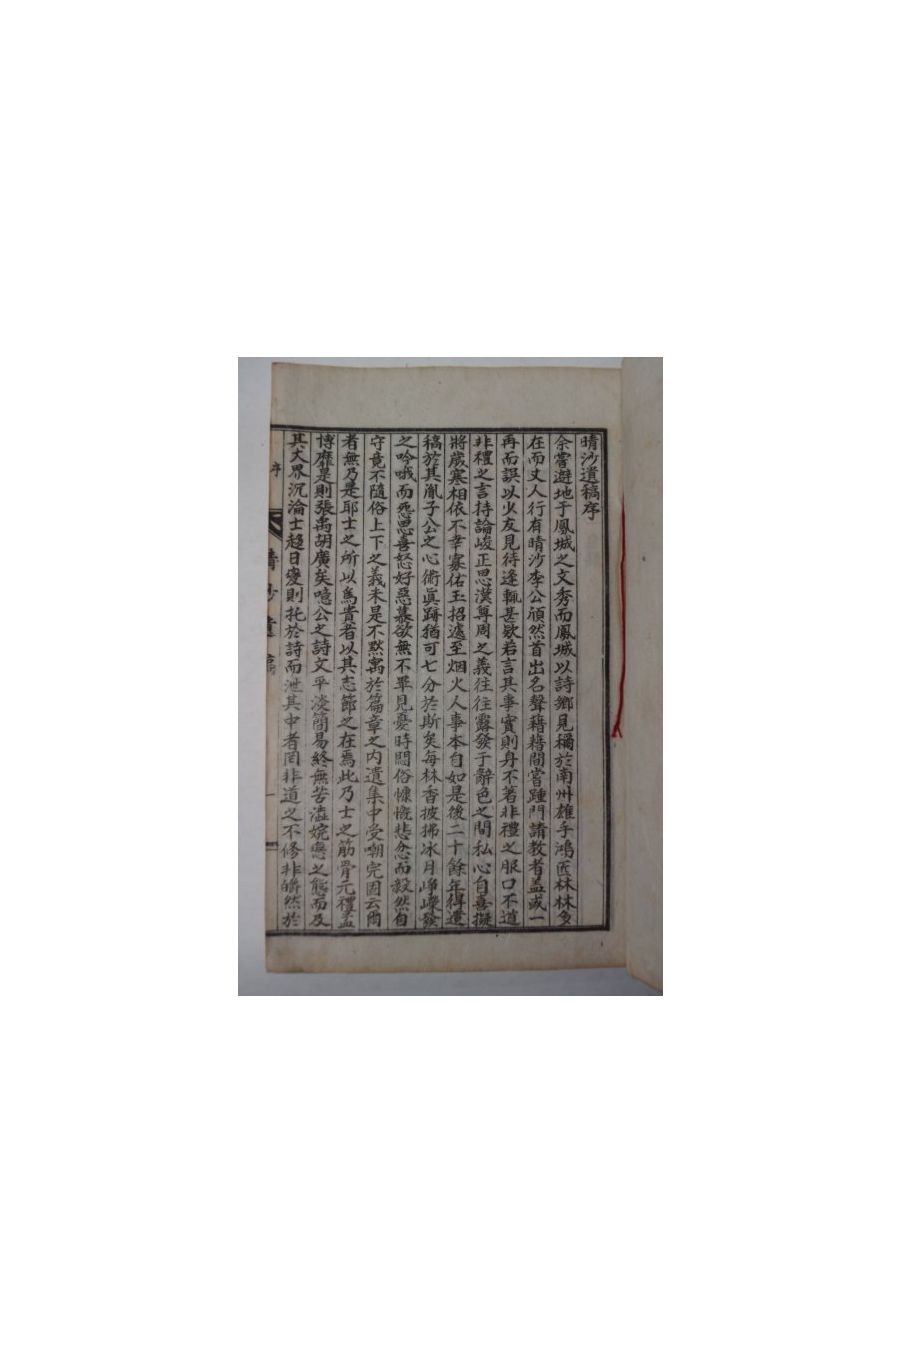 晴沙遺稿序
余嘗避地于鳳城之文秀而鳳城以詩鄉見稱於南州雄手鴻匠林林多
在而丈人行有晴沙李公頎然首出名聲藉藉間嘗踵門請敎者盖或一
再而誤以少友見待逢輒甚歡若言其事實則身不著非禮之服口不道
非禮之言持論峻正思漢尊周之義往往露發于辭色之間私心自喜擬
將歲寒相依不幸寡佑玉招遽至烟火人事本自如是後二十餘年得遺
稿於其胤子公之心術眞跡猶可七分於斯矣每林香披拂冰月崢嶸發
之吟哦而悲思喜怒好惡慕欲無不畢見憂時悶俗慷慨悲忿而毅然自
守竟不隨俗上下之義未是不默寓於篇章之內遺集中受嘲完固云爾
者無乃是耶士之所以爲貴者以其志節之在焉此乃士之筋骨元禮孟
博靡是則張禹胡廣矣噫公之詩文平淡簡易終無苦澁婉戀之態而及
其大界沉淪士趍日變則托於詩而泄其中者罔非道之不修非皭然於
序
晴沙遺稿
一